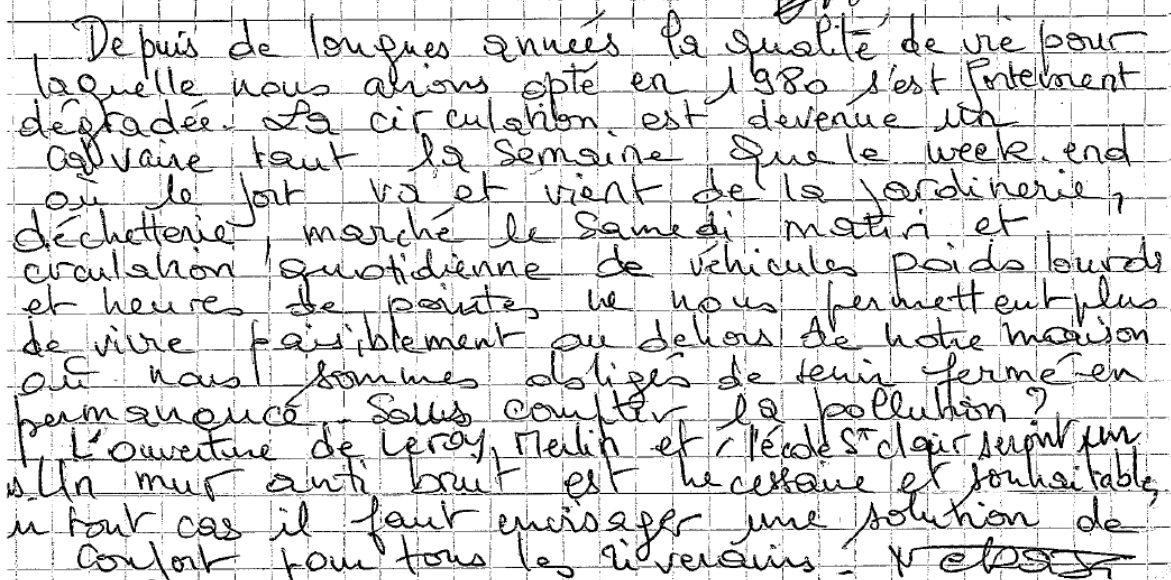 Depuis de longues années la qualité de vie pour
laquelle nous avions opté en 1980 s'est fortement
dégradée. La circulation est devenue un
calvaire tant la semaine que le week-end
où le fort va et vient de la jardinerie,
déchetterie, marché le samedi matin et
circulation quotidienne de véhicules poids lourds
et heures de pointes ne nous permettent plus
de vivre paisiblement au dehors de notre maison
où nous sommes obligés de tenir fermé en
permanence. Sans compter la pollution?
L'ouverture de Leroy Merlin et l'école St clair seront un
Un mur anti bruit est nécessaire et souhaitable,
tout cas il faut envisager une solution de
confort pour tous les riverains.